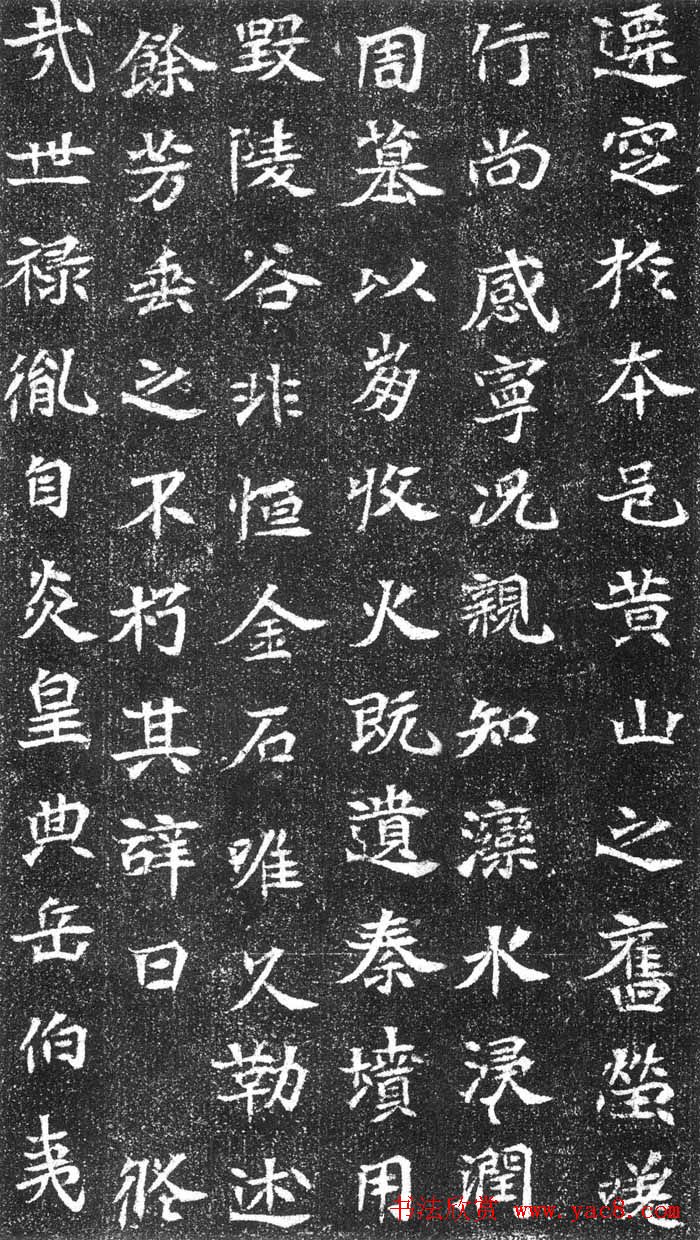 遷窆於本邑黄山之舊塋嘆
行尚感寧況親知灤水浸潤
周墓以芻牧火既遺秦墳用
毀陵谷非恒金石唯久勒述
餘芳垂之不朽其辭曰 悠
哉世禄胤自炎皇典岳伯夷
书法欣赏 www.yac8.com